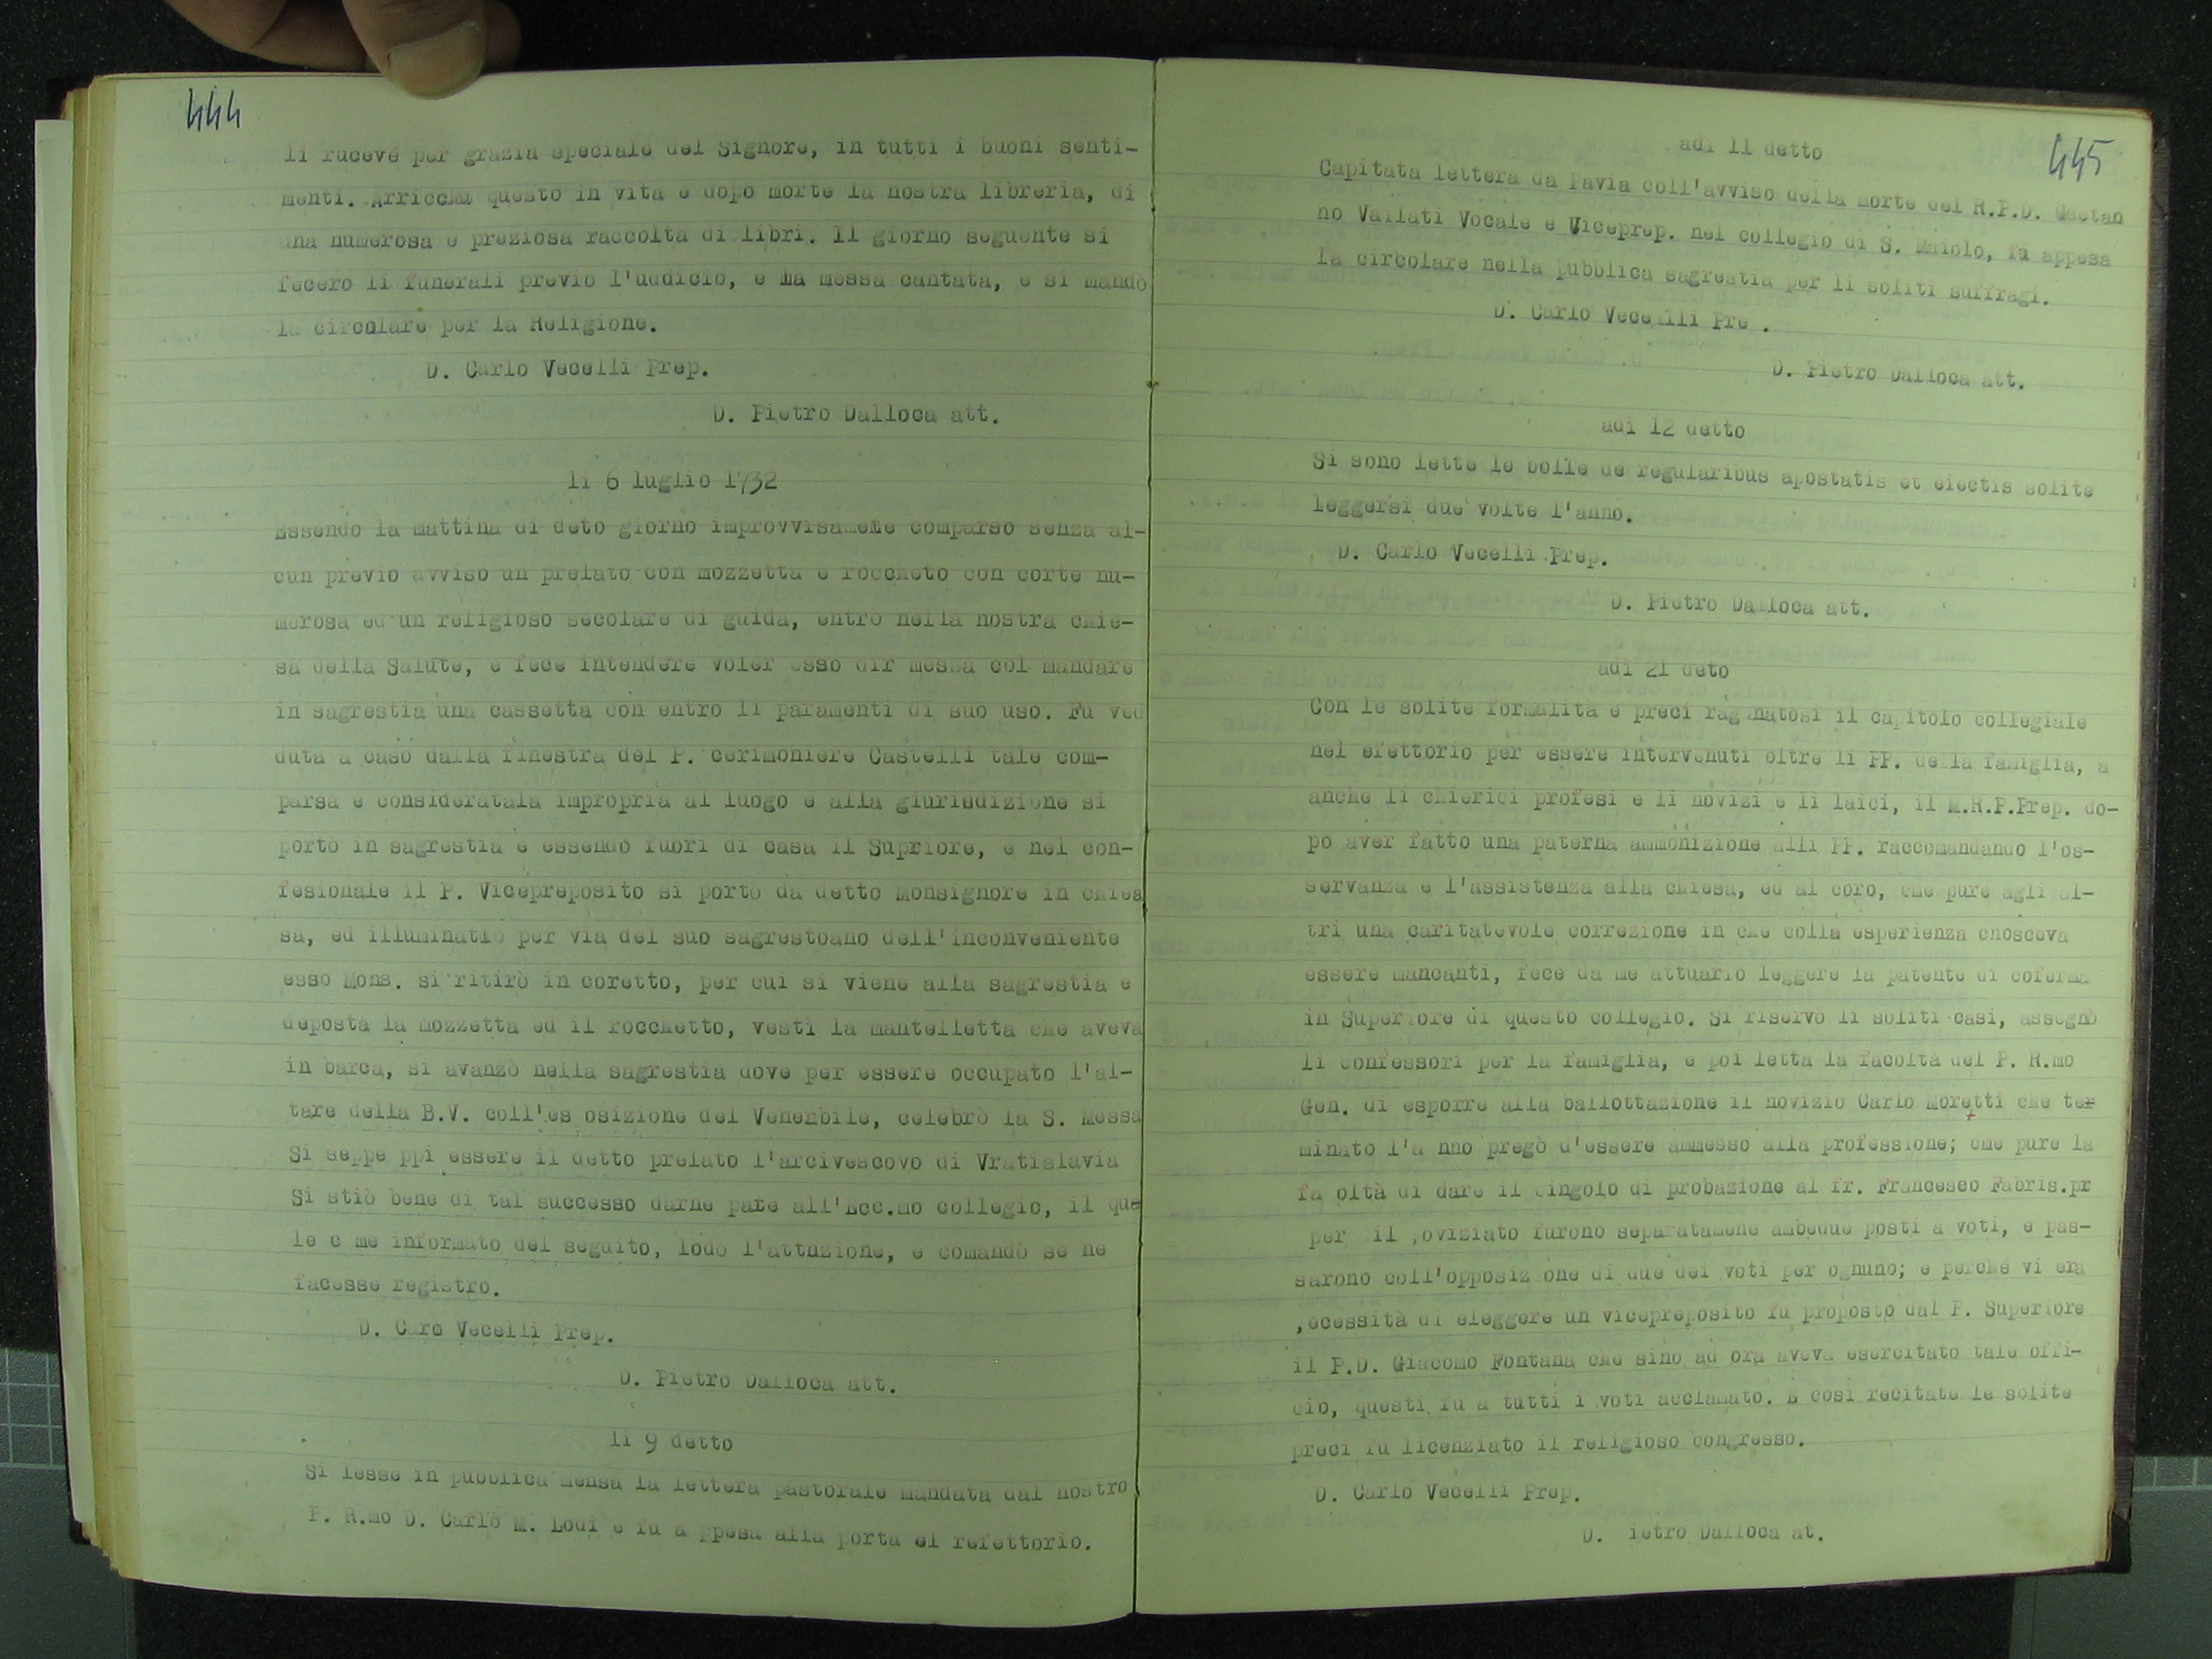 444
li rucevé per grazia speciale del Signore, in tutti i buoni senti-
menti. Arricchì questo in vita e dopo morte la nostra libreria, di
una numerosa e preziosa raccolta di libri. Il giorno seguente si
fecero li funerali previo l'uddicio, e la messa cantata, e si mandò
la circolare per la Religione.
D. Carlo Vecelli Prep.
D. Pietro Dalloca att.
li 6 luglio 1732
Essendo la mattina di deto giorno improvvisamene comparso senza al-
cun previo avviso un prelato con mozzetta e roccheto con corte nu-
merosa ed un religioso secolare di guida, entrò nella nostra chie-
sa della Salute, e fece intendere voler esso dir messa col mandare
in sagrestia una cassetta con entro li paramenti di suo uso. Fu ved
duta a caso dalla finestra del P. cerimoniere Castelli tale com-
parsa e consideratala impropria al luogo e alla giurisdizione si
portò in sagrestia e essendo fuori di casa il Supriore, e nel con-
fesionale il P. Vicepreposito si portò da detto Monsignore in chies
sa, ed illuminatlo per via del suo sagrestoano dell'inconveniente
esso Mons. si ritirò in coretto, per cui si viene alla sagrestia e
deposta la mozzetta ed il rocchetto, vestì la mantelletta che aveva
in barca, si avanzò nella sagrestia dove per essere occupato l'al-
tare della B.V. coll'es osizione del Venenbile, celebrò la S. Messa
Si seppe ppi essere il detto prelato l'arcivescovo di Vratislavia
Si stiò bene di tal successo darne parte all'Ecc.mo collegio, il que
le c me informato del seguito, lodò l'attnzione, e comandò se ne
facesse registro.
D. Caro Vecelli Prep.
D. Pietro Dalloca att.
li 9 detto
Si lesse in pubblica mensa la lettera pastorale mandata dal nostro
P. R.mo D. Carlo M. Lodi e fu a ppesa alla porta el refettorio.
445
adi 11 detto
Capitata lettera da Pavia coll'avviso della morte del R.P.D. Gaetan
no Vailati Vocale e Viceprep. nel collegio di S. Maiolo, fu appesa
la circolare nella pubblica sagrestia per li soliti suffragi.
D. Carlo Vecellli Pre .
D. Pietro Dalloca att.
adi 12 detto
Si sono lette le bolle de regularibus apostatis et eiectis solite
leggersi due volte l'anno.
D. Carlo Vecelli Prep.
D. Pietro Dalloca att.
adi 21 deto
Con le solite formalità e preci ragunatosi il capitolo collegiale
nel efettorio per essere intervenuti oltre li PP. della famiglia, a
anche li chierici profesi e li novizi e li laici, il M.R.P.Prep. do-
po aver fatto una paterna ammonizione alli PP. raccomandando l'os-
servanza e l'assistenza alla chiesa, ed al coro, che pure agli al-
tri una caritatevole correzione in che colla esperienza cnosceva
essere mancanti, fece da me attuario leggere la patente di coferma
in Superiore di questo collegio. Si riservò li soliti casi, assegnò
li confessori per la famiglia, e poi letta la facoltà del P. R.mo
Gen. di esporre alla ballottazione il novizio Carlo Moretti che ter
minato l'a nno pregò d'essere ammesso alla professione; che pure la
fa oltà di dare il cingolo di probazione al fr. Francesco Fabris.pr
per il ,oviziato furono separatamene ambedue posti a voti, e pas-
sarono coll'opposiz one di due dei voti per ognuno; e perché vi era
,ecessità di eleggere un vicepreposito fu proposto dal P. Superiore
il P.D. Giacomo Fontana che sino ad ora aveva esercitato tale offi-
cio, questi fu a tutti i voti acclamato. E così recitate le solite
preci fu licenziato il religioso congresso.
D. Carlo Vecelli Prep.
D. ietro Dalloca at.